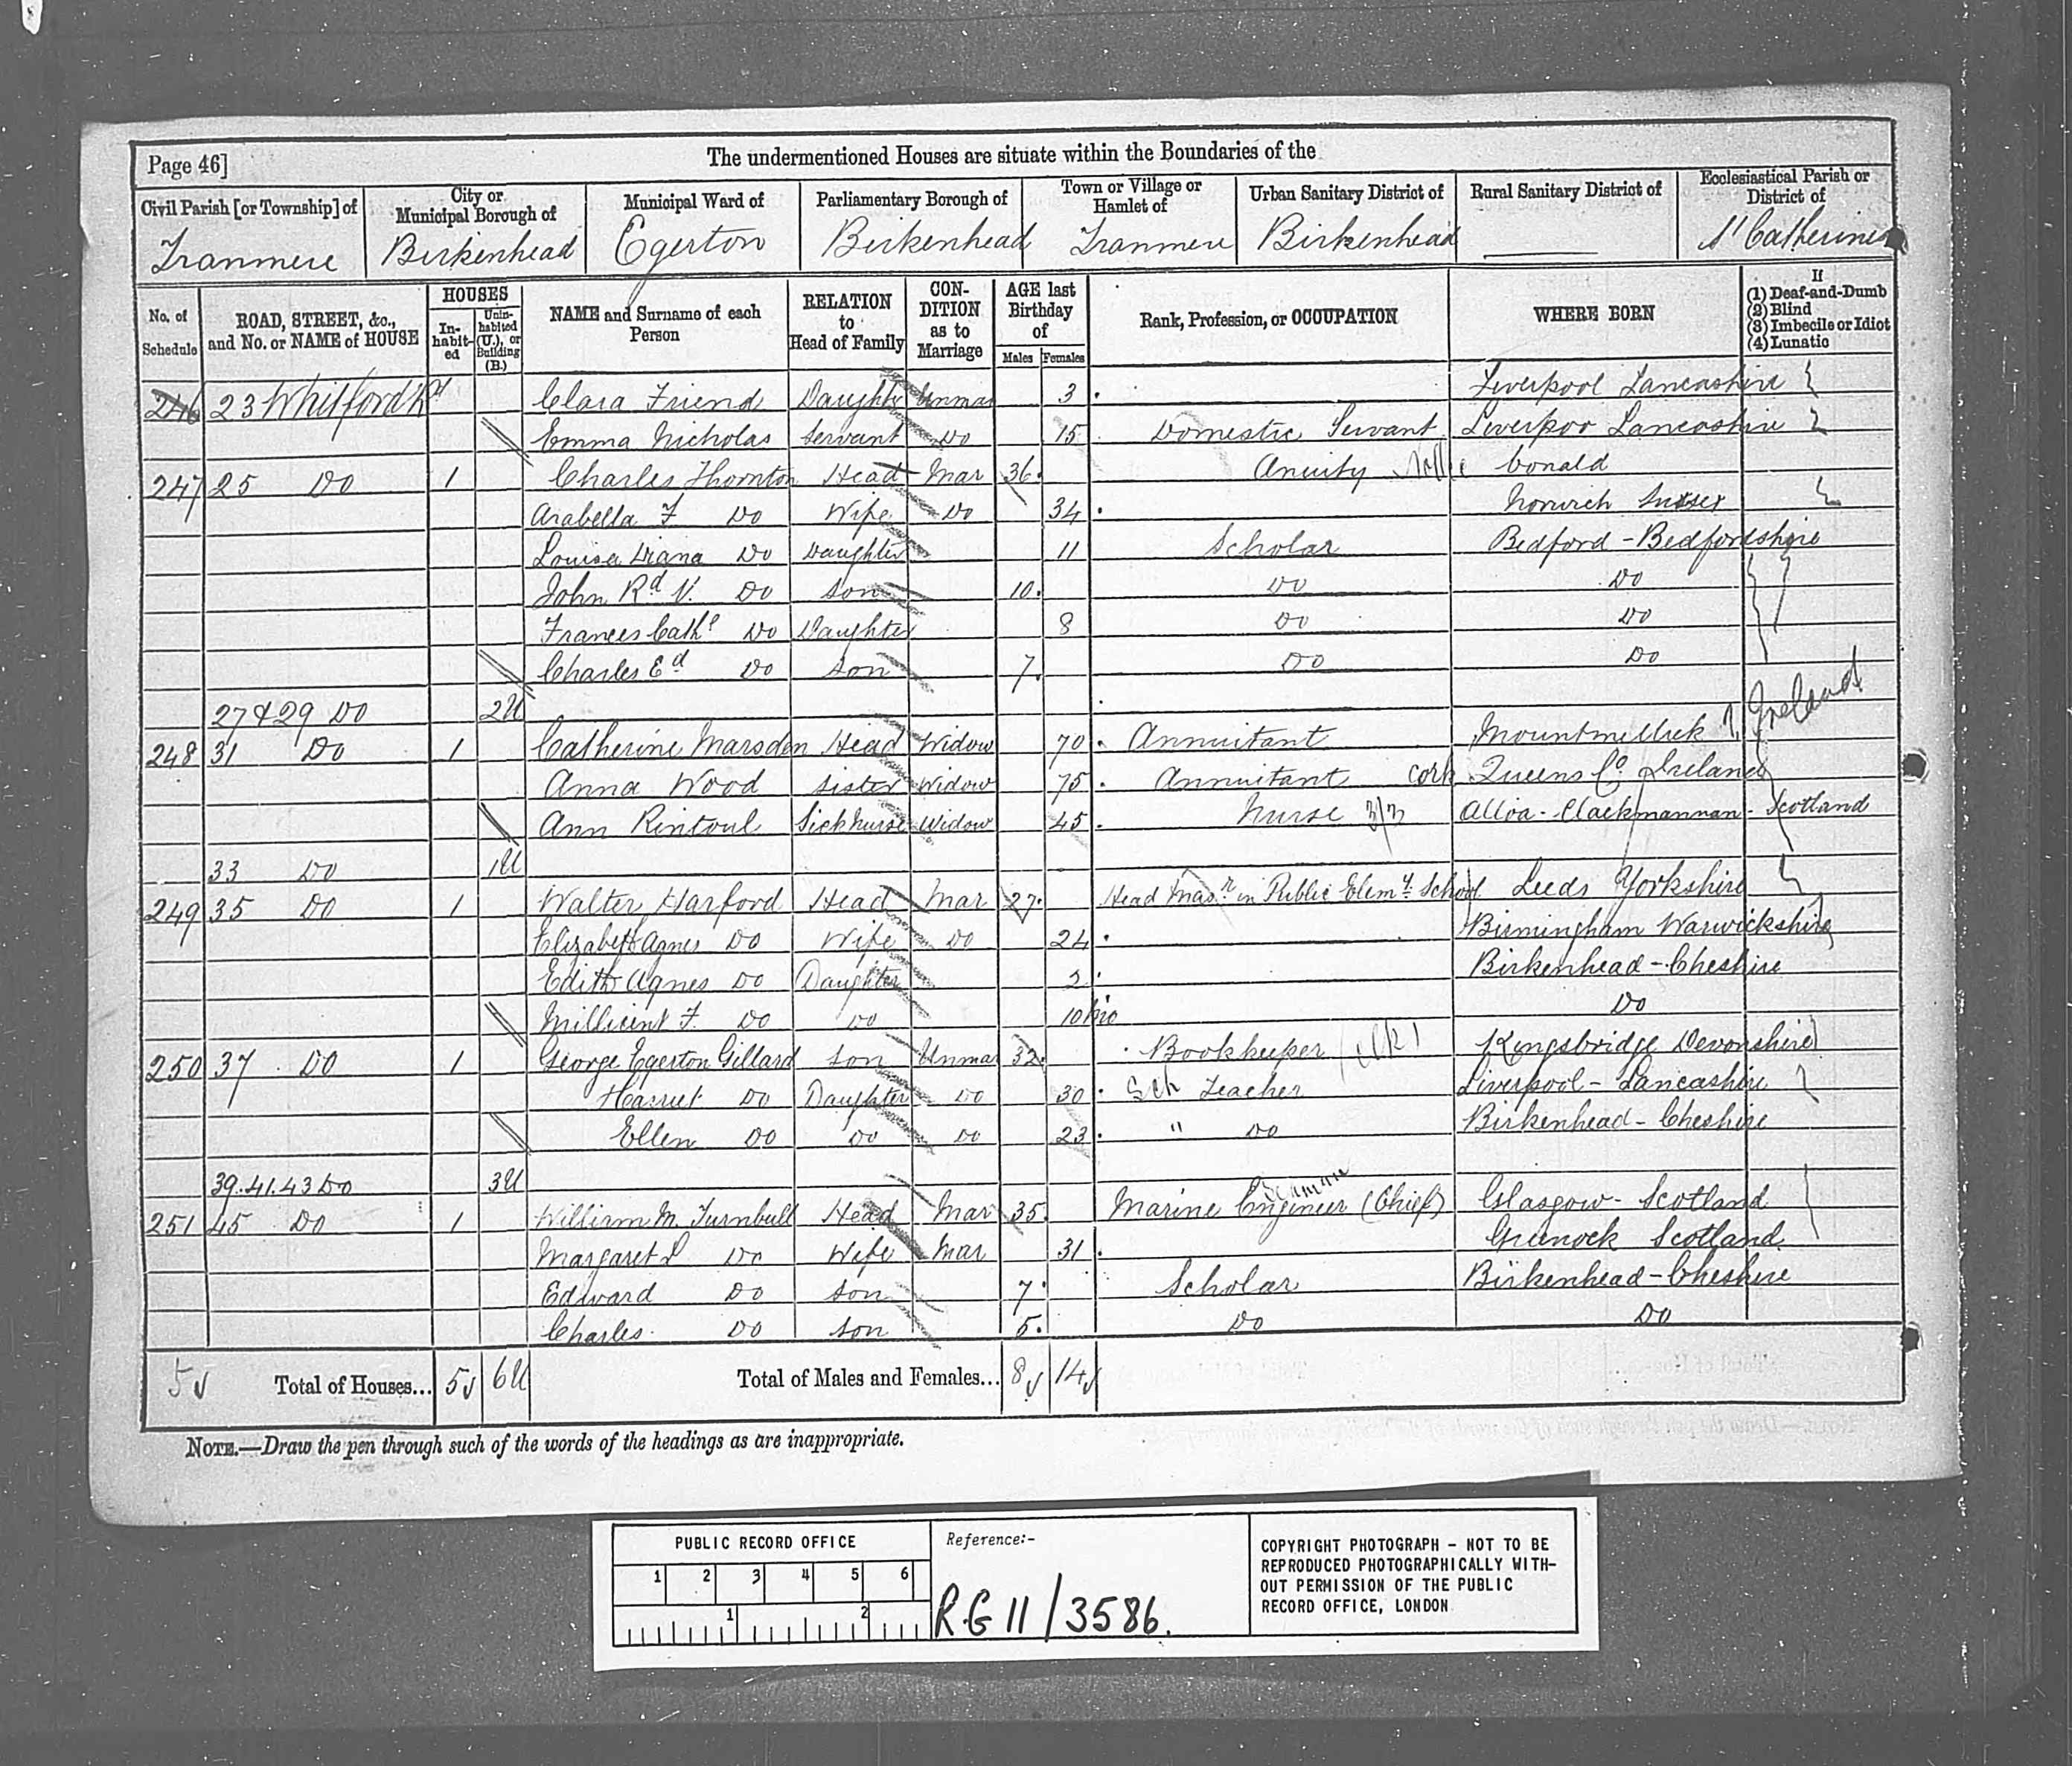 Page 46]
The undermentioned Houses are situate within the Boundaries of the
Civil Parish [or Township] of City or Municipal Borough of Municipal Ward of Parliamentary Borough of Town or Village or Hamlet of Urban Sanitary District of Rural Sanitary District of Ecclesiastical Parish or District of
Tranmere Birkenhead Egerton Birkenhead Tranmere Birkenhead St Catherines
No. of Schedule ROAD, STREET, &c., and No. or NAME of HOUSE HOUSES In-habit-ed Unin-habited (U.), or Building (B.) NAME and Surname of each Person RELATION to Head of Family CON-DITION as to Marriage AGE last Birthday of Males Females Rank, Profession, or OCCUPATION WHERE BORN If (1) Deaf-and-Dumb (2) Blind (3) Imbecile or Idiot (4) Lunatic
246 23 Whitford Rd Clara Friend Daughter Unmar 3 Liverpool Lancashire
Emma Nicholas Servant Do 15 Domestic Servant Liverpoo Lancashire
247 25 Do 1 Charles Thornton Head Mar 36 Anuity Conald
Arabella F Do Wife Do 34 Norwich Sussex
Louisa Diana Do Daughter 11 Scholar Bedford - Bedfordshire
John Rd V. Do Son 10 Do Do
Frances Cathe Do Daughter 8 Do Do
Charles Ed Do Son 7 Do Do
27 & 29 Do 2U
248 31 Do 1 Catherine Marsden Head Widow 70 Annuitant Mountmellick Ireland
Anna Wood Sister Widow 75 Annuitant Cork Queens Co Ireland
Ann Rintoul Sick nurse Widow 45 Nurse Alloa - Clackmannan - Scotland
33 Do 1U
249 35 Do 1 Walter Harford Head Mar 27 Head Masr in Public Elemy School Leeds Yorkshire
Elizabeth Agnes Do Wife Do 24 Birmingham Warwickshire
Edith Agnes Do Daughter 2 Birkenhead - Cheshire
Millicent F. Do Do 10 mo Do
250 37 Do 1 George Egerton Gillard Son Unmar 32 Bookkeeper Kingsbridge Devonshire
Harriet Do Daughter Do 30 Sch Teacher Liverpool - Lancashire
Ellen Do Do Do 23 " Do Birkenhead - Cheshire
39. 41. 43 Do 3U
251 45 Do 1 William M. Turnbull Head Mar 35 Marine Engineer (Chief) Glasgow - Scotland
Margaret L Do Wife Mar 31 Greenock Scotland
Edward Do Son 7 Scholar Birkenhead - Cheshire
Charles Do Son 5 Do Do
5 Total of Houses... 5 6U Total of Males and Females... 8 14
NOTE.—Draw the pen through such of the words of the headings as are inappropriate.
PUBLIC RECORD OFFICE
1 2 3 4 5 6
1 2
Reference:-
RG 11/3586.
COPYRIGHT PHOTOGRAPH - NOT TO BE
REPRODUCED PHOTOGRAPHICALLY WITH-
OUT PERMISSION OF THE PUBLIC
RECORD OFFICE, LONDON